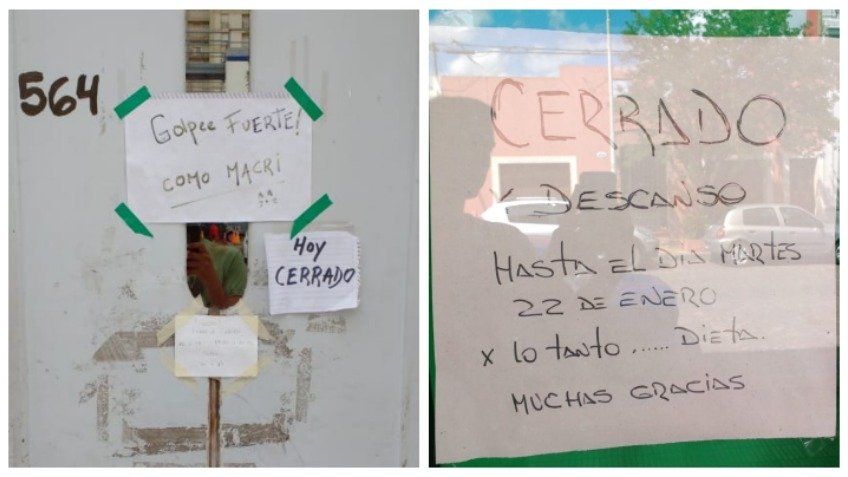 564
Golpee FUERTE!
COMO MACRI
Hoy
CERRADO
CERRADO
Y DESCANSO
HASTA EL DIA MARTES
22 DE ENERO
X LO TANTO ...... DIETA.
MUCHAS GRACIAS